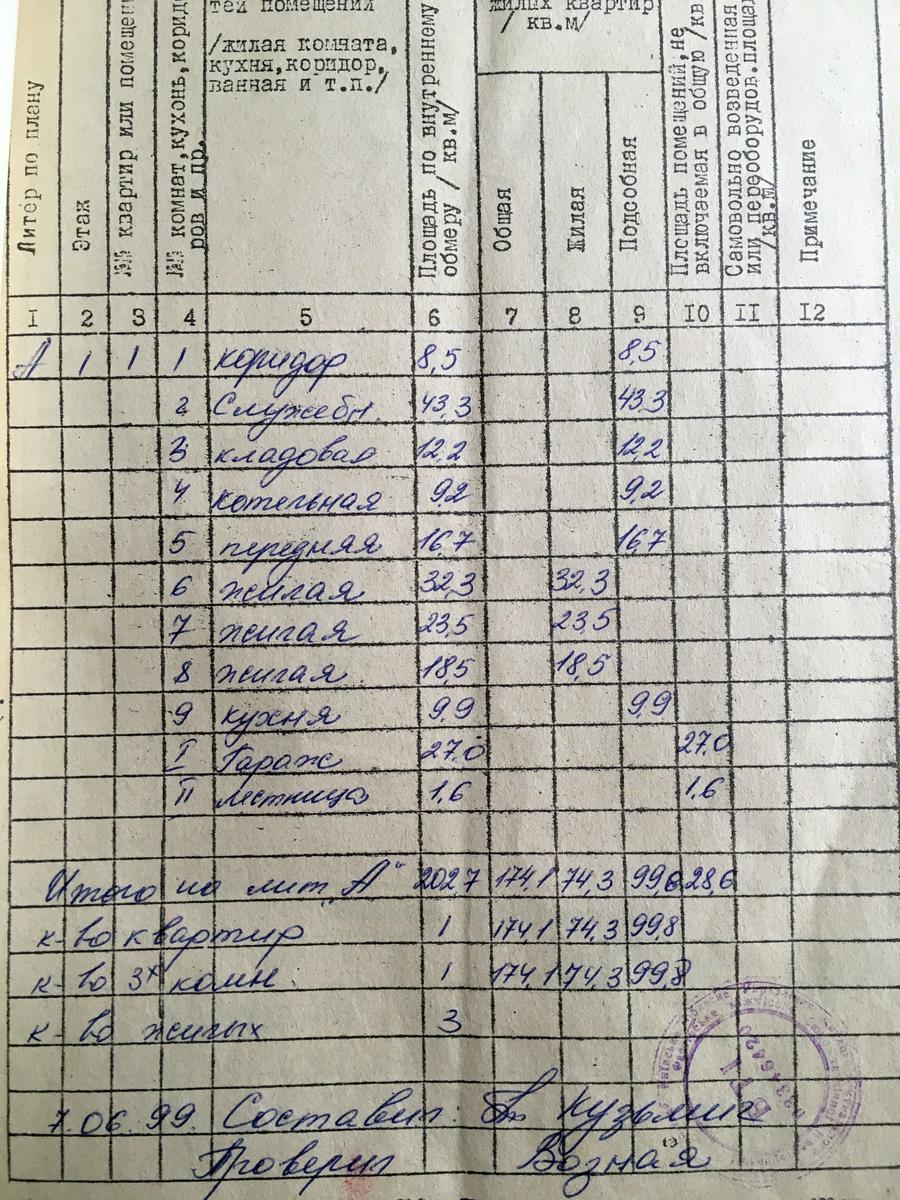 тей помещений
/жилая комната,
кухня, коридор,
ванная и т.п./
жилых квартир
/ кв.м/
Литер по плану
Этаж
№№ квартир или помещен
№№ комнат, кухонь, корид
ров и пр.
Площадь по внутреннему
обмеру / кв.м/
Общая
Жилая
Подсобная
Площадь помещений, не
включаемая в общую /кв
Самовольно возведенная
или переоборудов. площад
/кв.м/
Примечание
I 2 3 4 5 6 7 8 9 IO II I2
А 1 1 1 коридор 8,5 8,5
2 Служебн. 43,3 43.3
3 кладовая 12,2 12,2
4 котельная 9,2 9,2
5 передняя 16,7 16,7
6 жилая 32,3 32,3
7 жилая 23,5 23,5
8 жилая 18,5 18,5
9 кухня 9,9 9,9
I Гараж 27,0 27,0
II лестница 1,6 1,6
Итого по лит „А“ 202,7 174,1 74,3 99,8 28,6
к-во квартир 1 174,1 74,3 99,8
к-во 3х комн. 1 174,1 74,3 99,8
к-во жилых 3
7.06.99. Составил: Кузьмич
Проверил Возная
БТІ